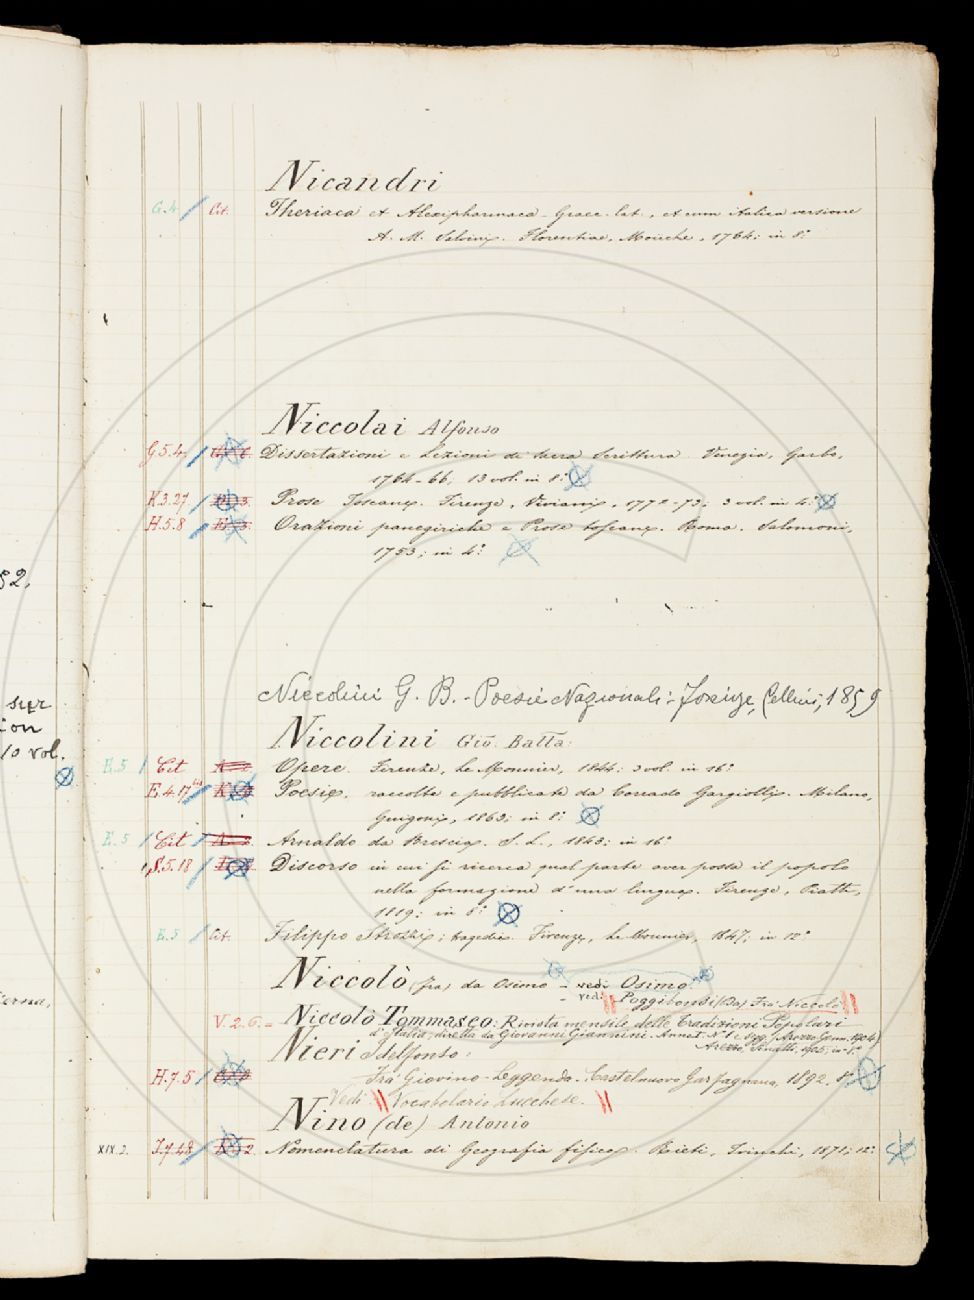 Nicandri
G.4 Cit. Theriaca et Alexipharmaca - Graec. lat., et cum italica versione
A. M. Salvini. Florentiae, Moücke, 1764; in 8.°
Niccolai Alfonso
G.5.4 Dissertazioni e Lezioni di Sacra Scrittura. Venezia, Garbo,
1764-66, 13 vol. in 8.°
K.3.27 Prose Toscane. Firenze, Viviani, 1772-73; 3 vol. in 4.°
H.5.8 Orazioni panegiriche e Prose toscane. Roma. Salomoni,
1753; in 4.°
92.
Niccolini G. B. - Poesie Nazionali - Firenze, Cellini, 1859
sur
ion
10 vol.
Niccolini Gio. Batta:
E.5 Cit Opere. Firenze, Le Monnier, 1844: 3 vol. in 16°
E.4.17 bis Poesie. raccolte e pubblicate da Corrado Gargiolli. Milano,
Guigoni, 1863; in 8.°
E.5 Cit Arnaldo da Brescia. S. L., 1843; in 16°
S.5.18 Discorso in cui si ricerca qual parte aver possa il popolo
nella formazione d'una lingua. Firenze, Piatti,
1819; in 8.°
E.5 Cit. Filippo Strozzi; tragedia. Firenze, Le Monnier, 1847; in 12°
Niccolò (fra) da Osimo - vedi Osimo
- vedi Poggibonsi (Da) Fra Niccolò
V.2.6. = Niccolò Tommaseo: Rivista mensile delle Tradizioni Popolari
d'Italia, diretta da Giovanni Giannini. Anno I. N° 1 e segg. (Arezzo Genn. 1904)
Arezzo, Sinatti, 1905, in 8.°
Nieri Idelfonso:
H.7.5 Fra Giovino - Leggenda. Castelnuovo Garfagnana, 1892. 8°
Vedi Vocabolario Lucchese.
Nino (de) Antonio
XIX.2. I.7.48 Nomenclatura di Geografia fisica. Rieti, Trinchi, 1871; 12.°